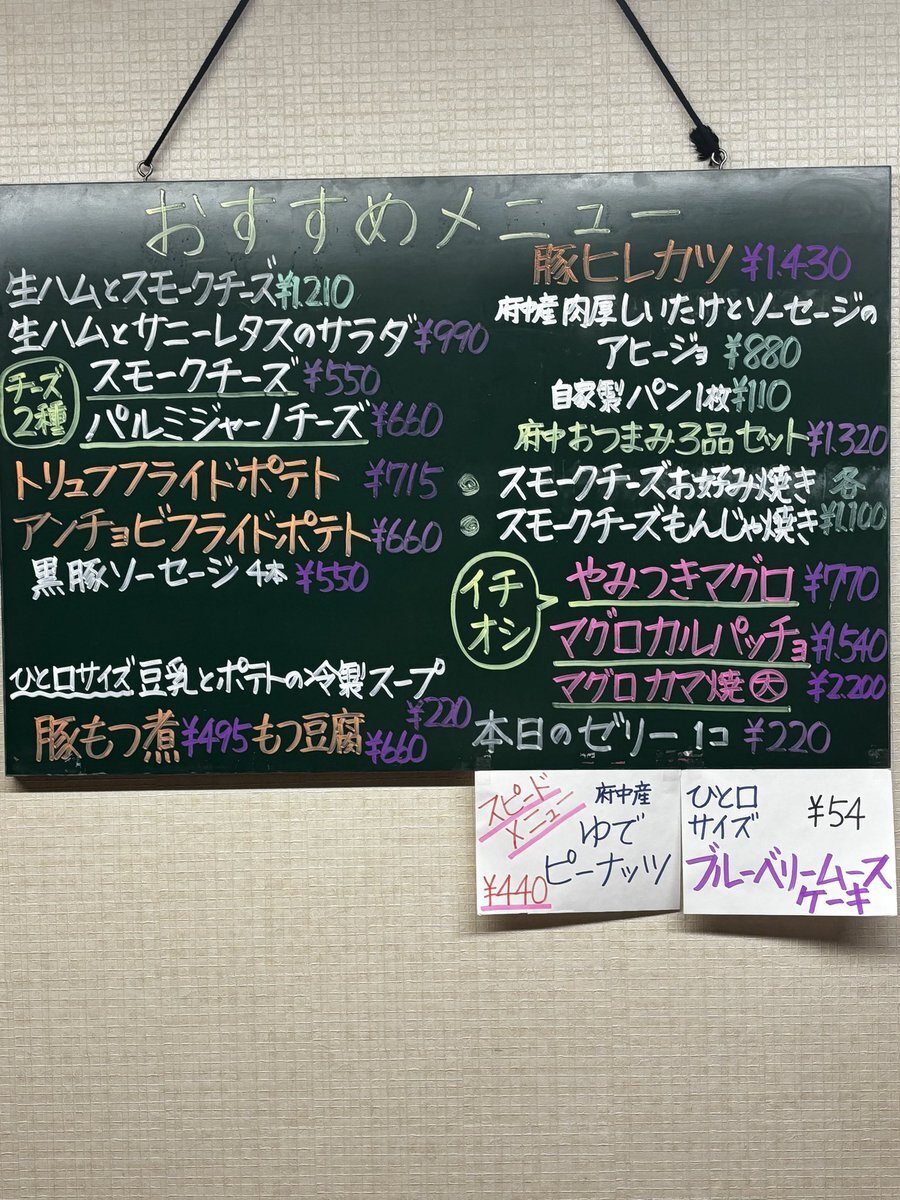 おすすめメニュー
生ハムとスモークチーズ¥1.210
生ハムとサニーレタスのサラダ¥990
チーズ2種
スモークチーズ¥550
パルミジャーノチーズ¥660
トリュフフライドポテト ¥715
アンチョビフライドポテト¥660
黒豚ソーセージ4本¥550
ひと口サイズ豆乳とポテトの冷製スープ
¥220
豚もつ煮¥495もつ豆腐¥660
豚ヒレカツ¥1.430
府中産肉厚しいたけとソーセージの
アヒージョ ¥880
自家製パン1枚¥110
府中おつまみ3品セット¥1.320
スモークチーズお好み焼き 各
スモークチーズもんじゃ焼き¥1.100
イチオシ
やみつきマグロ¥770
マグロカルパッチョ¥1.540
マグロカマ焼大 ¥2.200
本日のゼリー1コ ¥220
スピード
メニュー
府中産
ゆで
ピーナッツ
¥440
ひと口
サイズ
¥54
ブルーベリームース
ケーキ